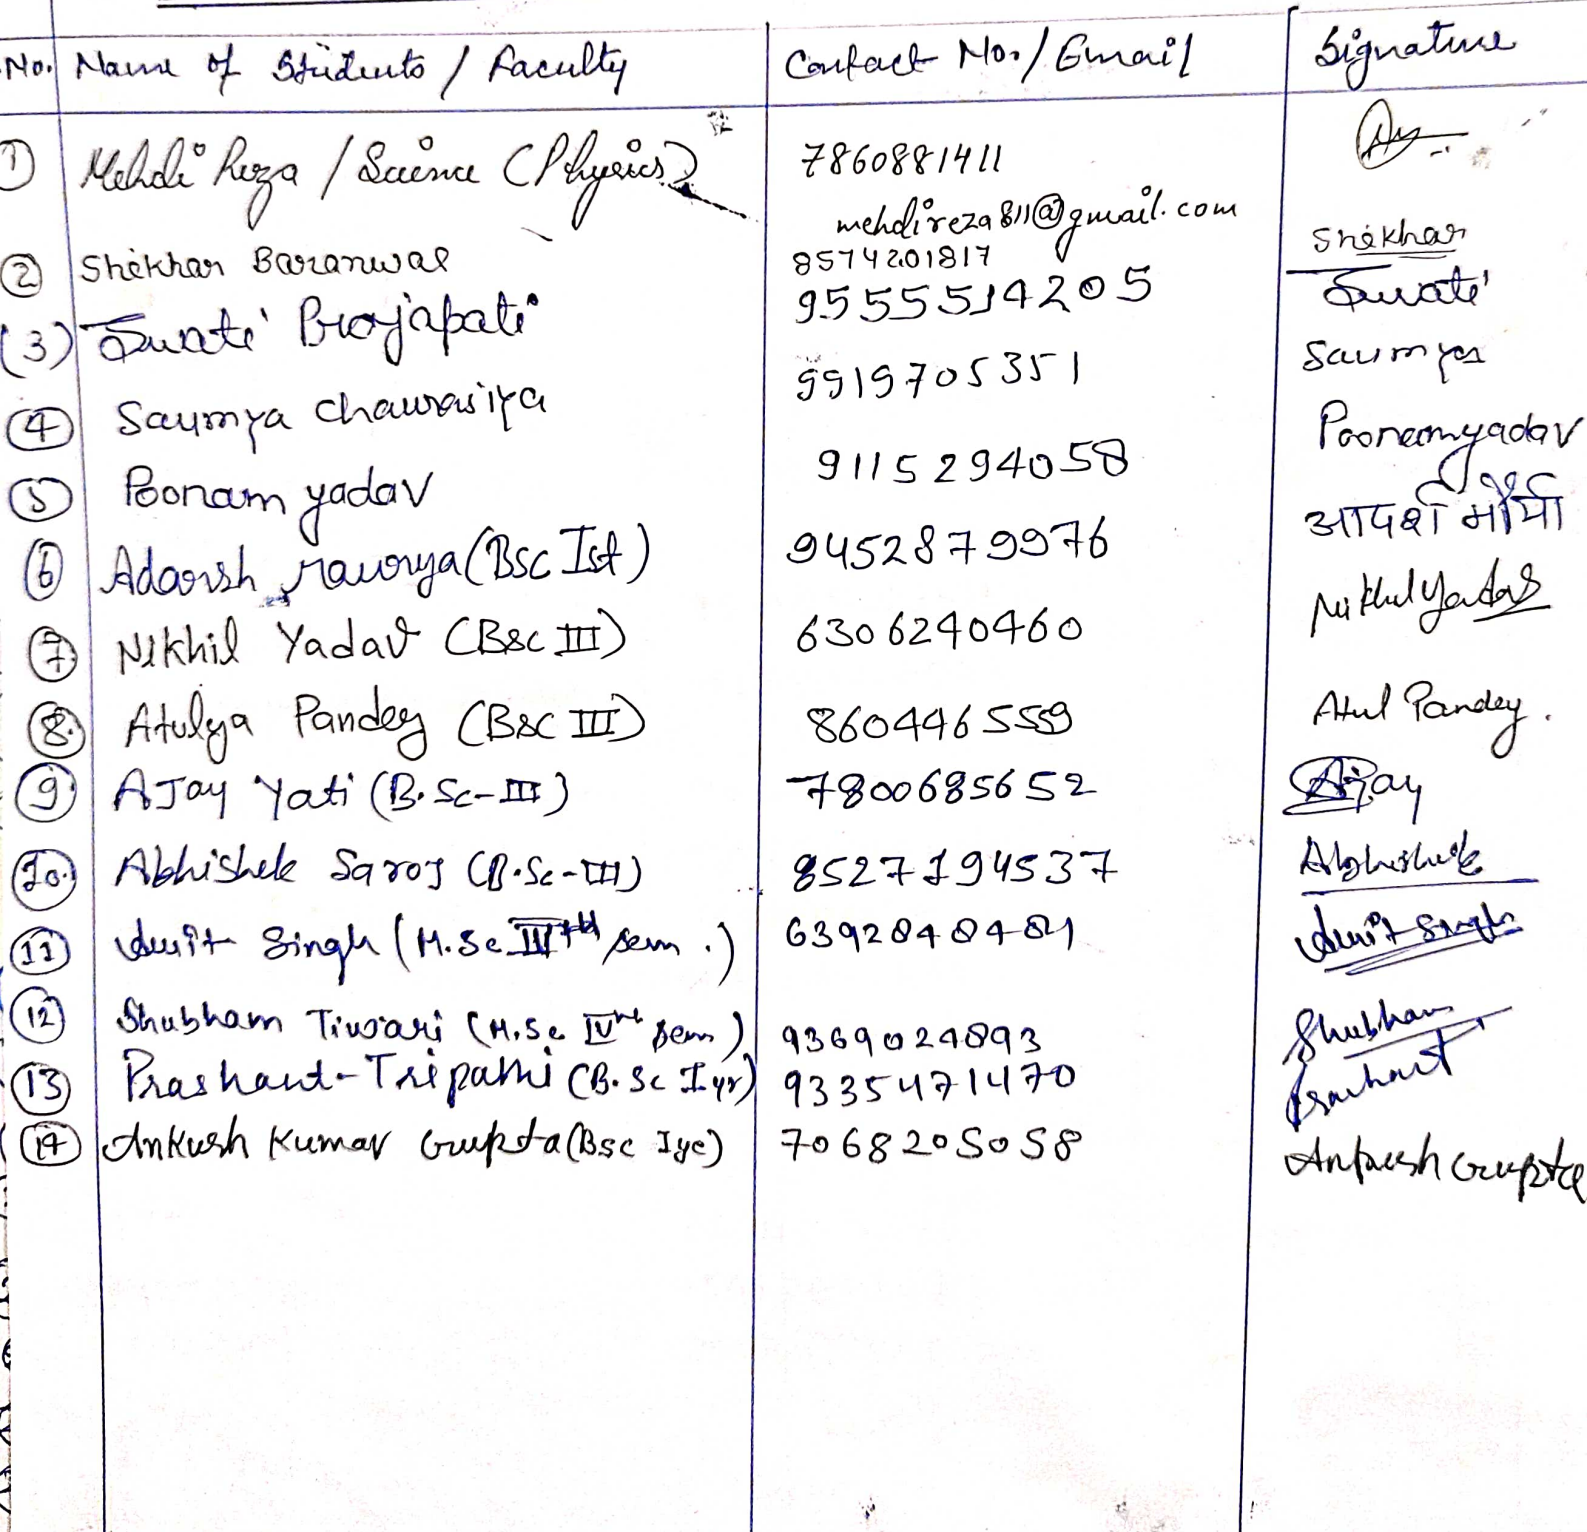 No. Name of Students / Faculty Contact No. / Email Signature
1 Mehdi Reza / Science (Physics) 7860881411
mehdireza811@gmail.com
2 Shekhar Baranwal 8574201817 Shekhar
(3) Swati Prajapati 9555514205 Swati
4 Saumya Chaurasiya 9919705351 Saumya
5 Poonam yadav 9115294058 Poonamyadav
6 Adarsh maurya (BSC Ist) 9452879976 आदर्श मौर्या
7 Nikhil Yadav (BSC III) 6306240460 Nikhil Yadav
8. Atulya Pandey (BSC III) 860446559 Atul Pandey.
9 AJay Yati (B.Sc-III) 7800685652 Ajay
10. Abhishek Saroj (B.Sc-III) 8527194537 Abhishek
11 Amit Singh (M.Sc IVth sem.) 6392848481 Amit Singh
12 Shubham Tiwari (M.Sc IVth sem) 9369024893 Shubham
13 Prashant Tripathi (B.Sc I yr) 9335471470 Prashant
14 Ankush Kumar Gupta (Bsc Iye) 7068205058 Ankush Gupta